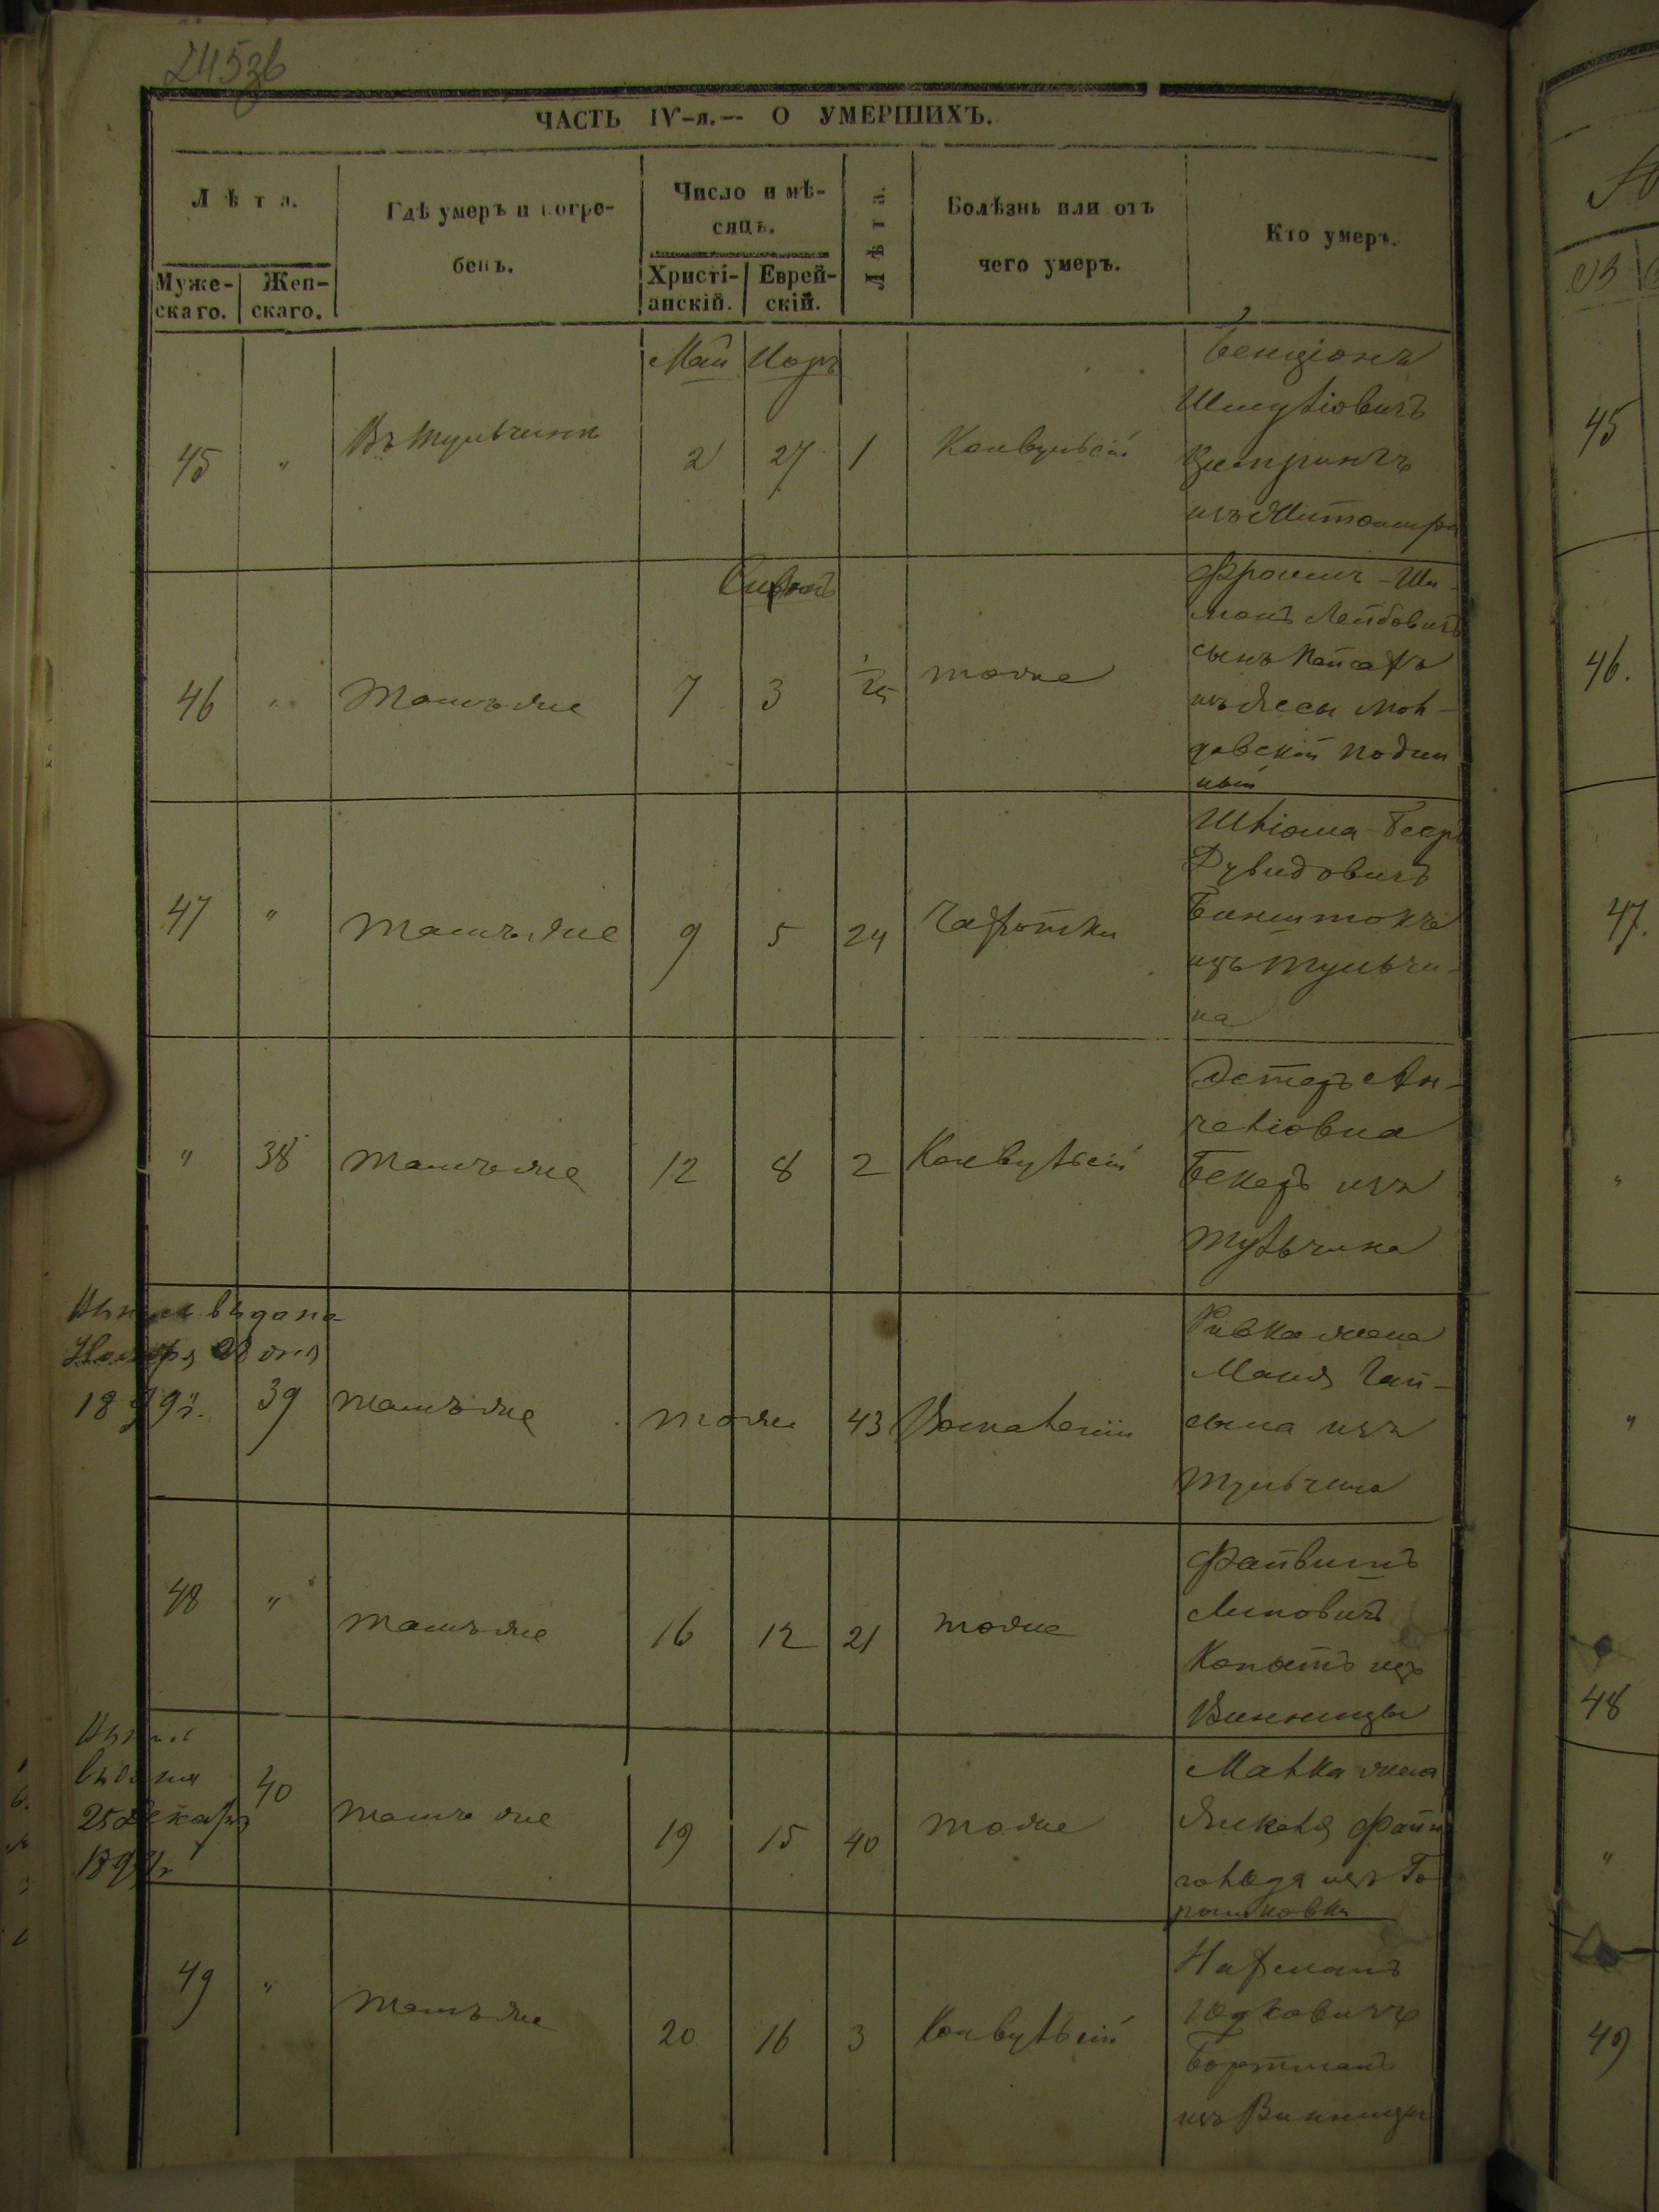 245зб
ЧАСТЬ IV-я.— О УМЕРШИХЪ.
Лѣта.
Мужескаго.
Женскаго.
Гдѣ умеръ и погребенъ.
Число и мѣсяцъ.
Христіанскій.
Еврейскій.
Лѣта.
Болѣзнь или отъ чего умеръ.
Кто умеръ.
Май Іоръ
45 " Въ Тульчинѣ 2 27 1 Конвульсій
Бенціонъ
Шмулiовичъ
Цитринъ
изъ Житомира
Сивонъ
46 " Тамъ же 7 3 1/25 тоже
Фроимъ-Ши-
монъ Лейбовичъ
сынъ
изъ Яссы мол-
давскій поддан
ный
47 " Тамъ же 9 5 24 Чахотки
Шліома-Беръ
Дувидовичъ
Бинштокъ
изъ Тульчи-
на
" 38 Тамъ же 12 8 2 Конвульсій
Эстеръ Ан-
челіовна
Бекеръ изъ
Тульчина
выдана
Ноября 28 дня
1899 г.
39 Тамъ же тоже 43 Воспаленіи
Ривка жена
Маня Гай-
сына изъ
Тульчина
48 " Тамъ же 16 12 21 тоже
Файвишъ
Липовичъ
Копытъ изъ
Винницы
25 Декабря
40 Тамъ же 19 15 40 тоже
Малка жена
Янкеля Файн
гольда изъ Го
рышковки
49 " Тамъ же 20 16 3 Конвульсій
Нахманъ
Юдковичъ
Бортманъ
изъ Винницы
45
46.
47.
"
"
48
"
49